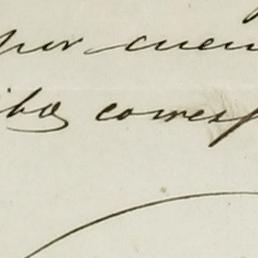 por cuen
ibo corresp